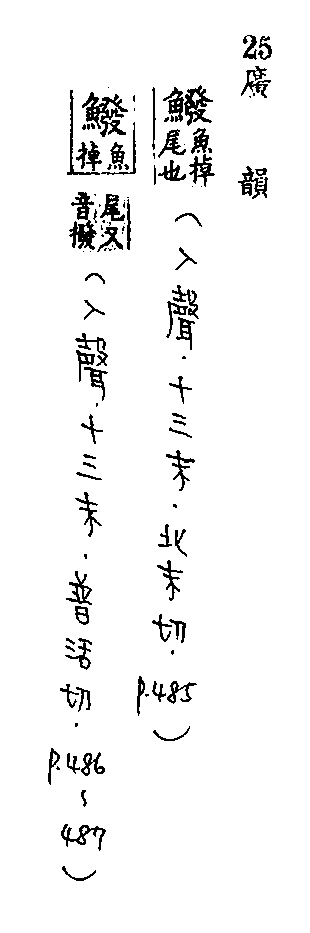 25廣韻
鱍魚掉尾也(入聲.十三末.北末切.p.485)
鱍魚掉尾又音撥(入聲.十三末.普活切.p.486~487)